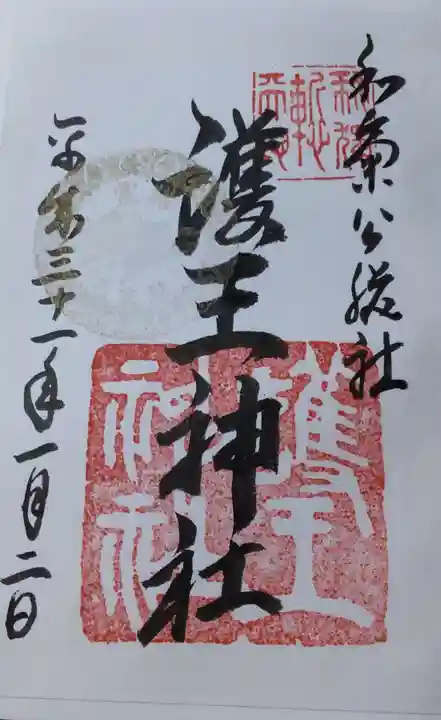 和氣公綜社
護王神社
平成三十一年一月二日
護王
神社